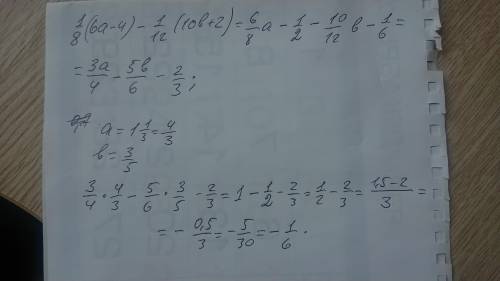 1/8(6a-4) - 1/12(10в+2) = 6/8 a - 1/2 - 10/12 в - 1/6 =
= 3a/4 - 5в/6 - 2/3;
a = 1 1/3 = 4/3
в = 3/5
3/4 * 4/3 - 5/6 * 3/5 - 2/3 = 1 - 1/2 - 2/3 = 1/2 - 2/3 = 1,5-2/3 =
= - 0,5/3 = - 5/30 = - 1/6.